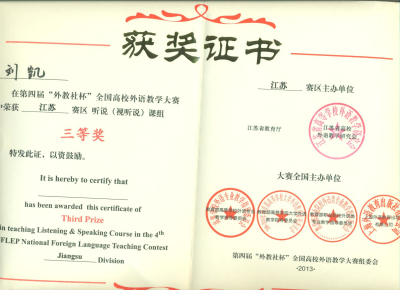 获奖证书
刘凯
在第四届“外教社杯”全国高校外语教学大赛
荣获 江苏 赛区 听说（视听说）课组
三等奖
特发此证，以资鼓励。
It is hereby to certify that
has been awarded this certificate of
Third Prize
in teaching Listening & Speaking Course in the 4th
FLEP National Foreign Language Teaching Contest
Jiangsu Division
江苏 赛区主办单位
江苏省教育厅
江苏省高校
外语教学研究会
大赛全国主办单位
第四届“外教社杯”全国高校外语教学大赛组委会
-2013-